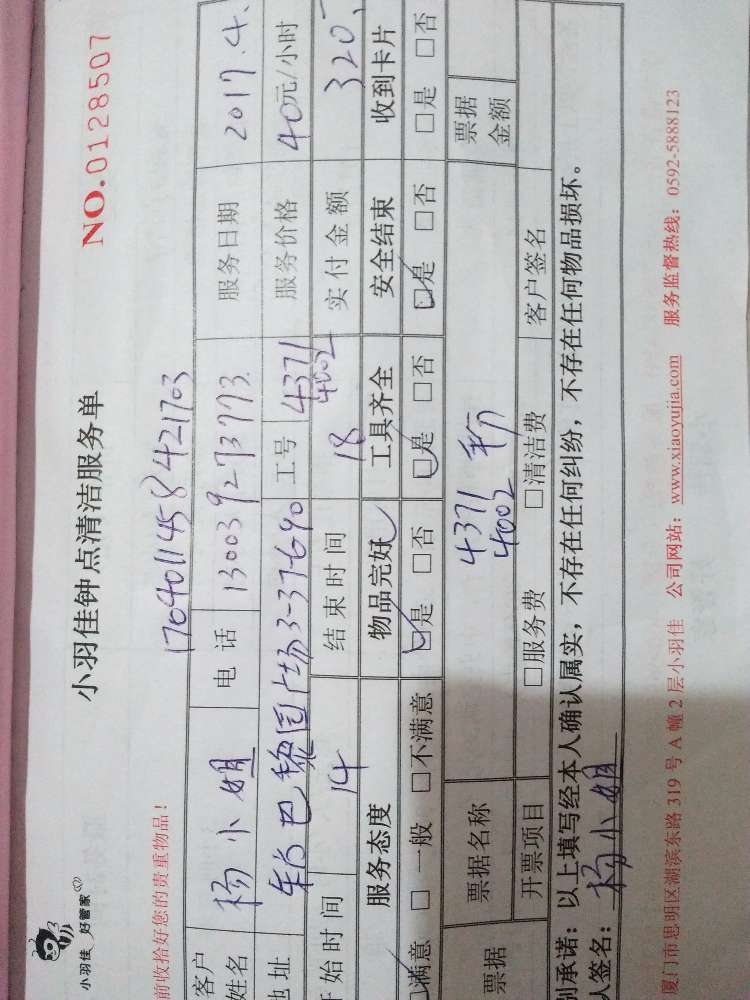 小羽佳 好管家
小羽佳钟点清洁服务单
NO.0128507
前收拾好您的贵重物品！
1704011458421703
客户姓名 杨小姐 电话 130039273773 服务日期 2017.4.
地址 巴黎广场3-37-690 工号 4371 4002 服务价格 40元/小时
开始时间 14 结束时间 18 实付金额 320
服务态度 物品完好 工具齐全 安全结束 收到卡片
☑满意 □一般 □不满意 ☑是 □否 ☑是 □否 ☑是 □否 □是 □否
票据 票据名称 4371 4002 票据金额
开票项目 □服务费 □清洁费 客户签名
别承诺：以上填写经本人确认属实，不存在任何纠纷，不存在任何物品损坏。
人签名：杨小姐
厦门市思明区湖滨东路 319 号 A 幢 2 层小羽佳 公司网站：www.xiaoyujia.com 服务监督热线：0592-5888123